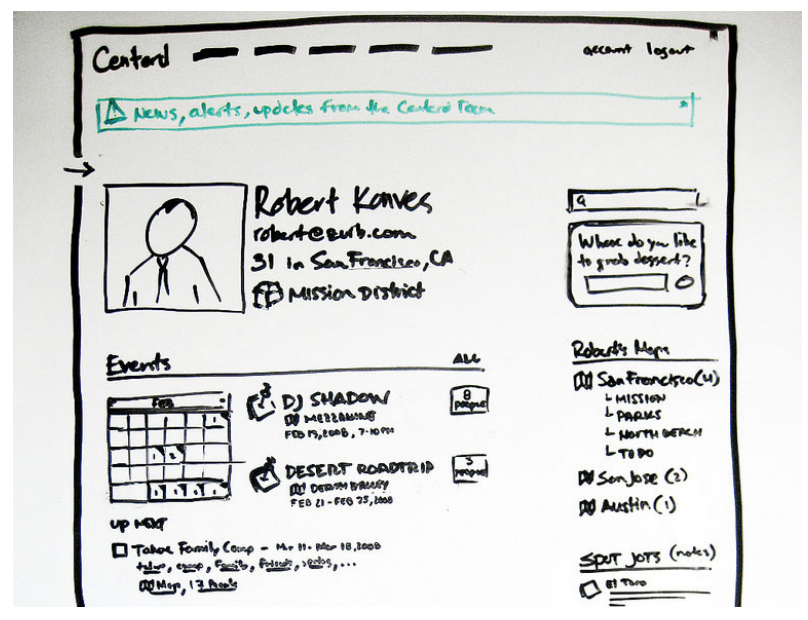 Centord
account logout
News, alerts, updates from the Centord Team
Robert Konves
robert@zurb.com
31 in San Francisco, CA
Mission District
Where do you like
to grab dessert?
Events
ALL
Robert's Maps
FEB
DJ SHADOW
MEZZANINE
FEB 19, 2008, 7-10PM
8
people
San Francisco (4)
MISSION
PARKS
NORTH BEACH
TO DO
DESERT ROADTRIP
DEATH VALLEY
FEB 21 - FEB 25, 2008
3
people
San Jose (2)
Austin (1)
UP NEXT
Tahoe Family Camp - Mar 11 - Mar 18, 2008
camp, Family, Friends,
Map, 17 People
SPOT JOTS (notes)
El Toro